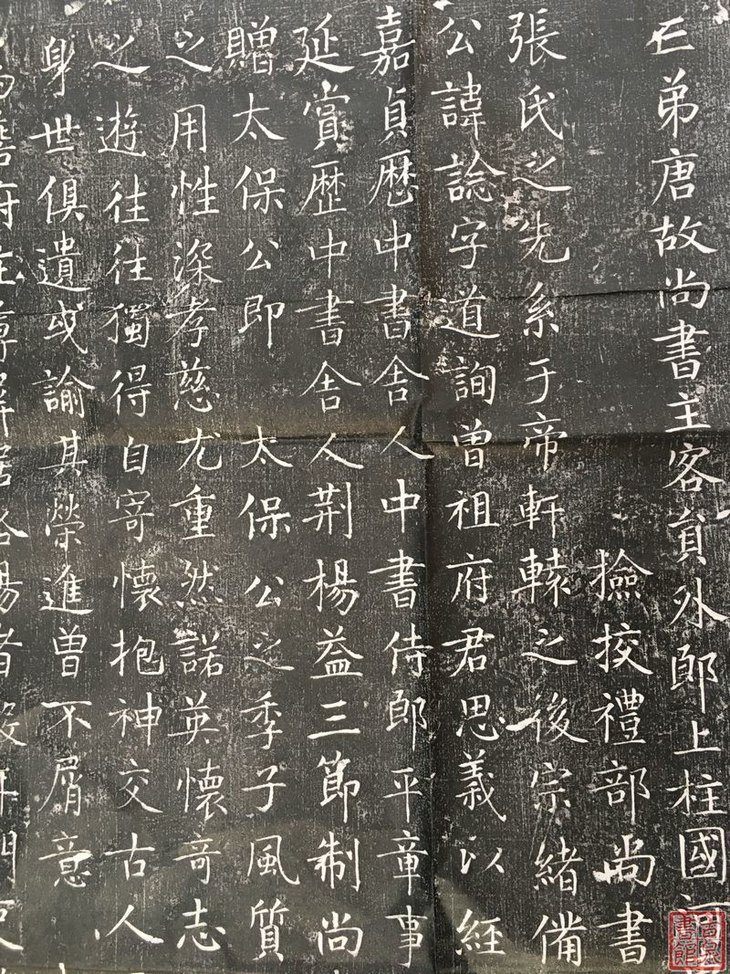 亡弟唐故尚書主客員外郎上柱國河
撿挍禮部尚書
張氏之先系于帝軒轅之後宗緒備
公諱諗字道詢曾祖府君思義以經
嘉貞歷中書舍人中書侍郎平章事
延賞歷中書舍人荆楊益三節制尚
贈太保公即太保公之季子風質
之用性深孝慈尤重然諾英懷奇志
之遊往往獨得自寄懷抱神交古人
身世俱遺或諭其榮進曾不屑意